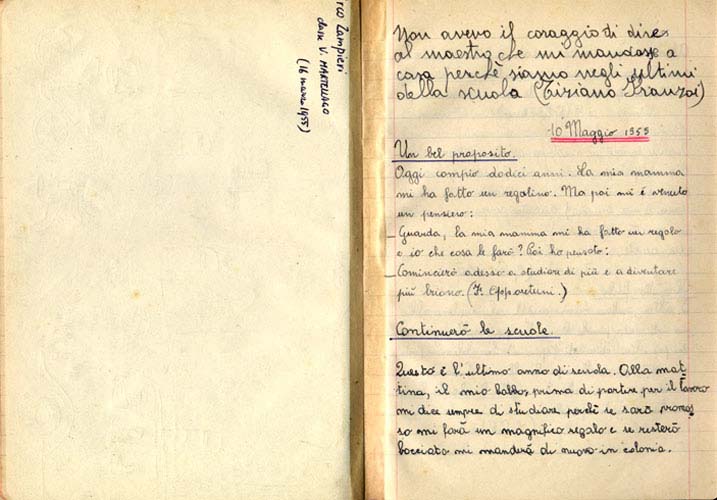 rco Zampieri
classe V. MARTELLAGO
(16 marzo 1955)
Non avevo il coraggio di dire
al maestro che mi mandasse a
casa perchè siamo negli ultimi
della scuola (Tiziano Franzoi)
10 Maggio 1955
Un bel proposito.
Oggi compio dodici anni. La mia mamma
mi ha fatto un regalino. Ma poi mi è venuto
un pensiero:
– Guarda, la mia mamma mi ha fatto un regalo
e io che cosa le farò? Poi ho pensato:
– Comincierò adesso a studiare di più e a diventare
più buono. (F.
Continuerò le scuole.
Questo è l'ultimo anno di scuola. Alla mat
tina, il mio babbo, prima di partire per il lavoro
mi dice sempre di studiare perchè se sarò promos
so mi farà un magnifico regalo e se resterò
bocciato mi manderà di nuovo in colonia.